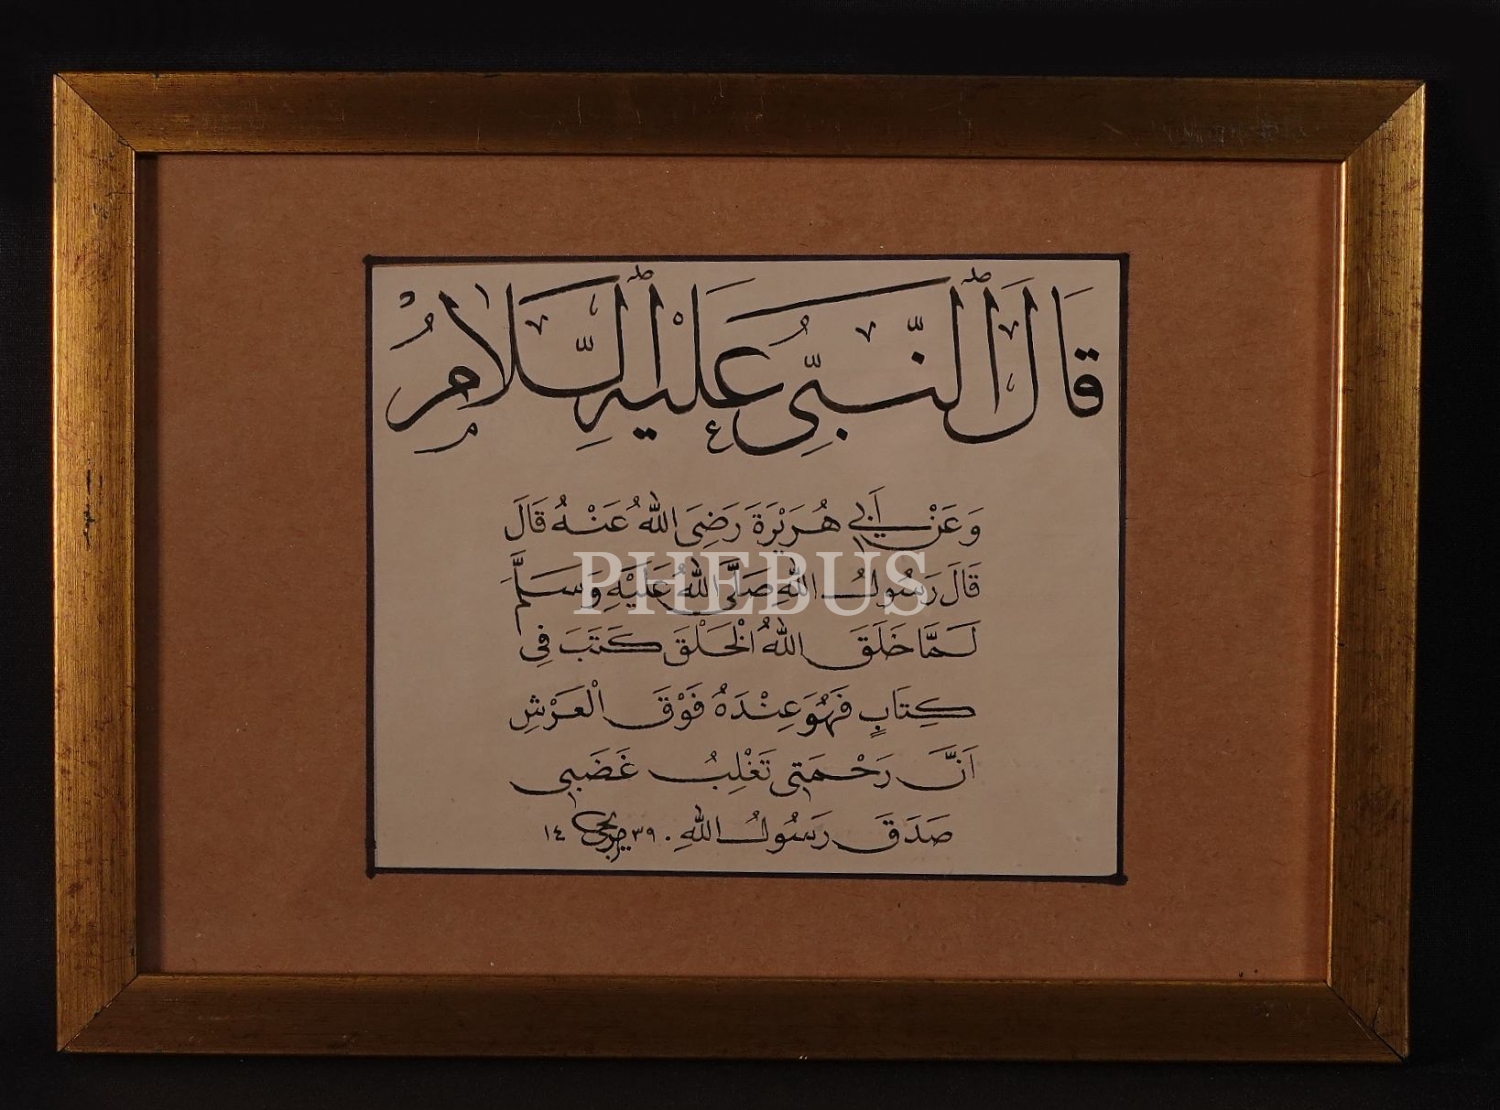 قَالَ النَّبِيُّ عَلَيْهِ السَّلَامُ
وَعَنْ أَبِي هُرَيْرَةَ رَضِيَ اللهُ عَنْهُ قَالَ
قَالَ رَسُولُ اللهِ صَلَّى اللهُ عَلَيْهِ وَسَلَّمَ
لَمَّا خَلَقَ اللهُ الْخَلْقَ كَتَبَ فِي
كِتَابٍ فَهُوَ عِنْدَهُ فَوْقَ الْعَرْشِ
اَنَّ رَحْمَتِي تَغْلِبُ غَضَبِي
صَدَقَ رَسُولُ اللهِ
PHEBUS